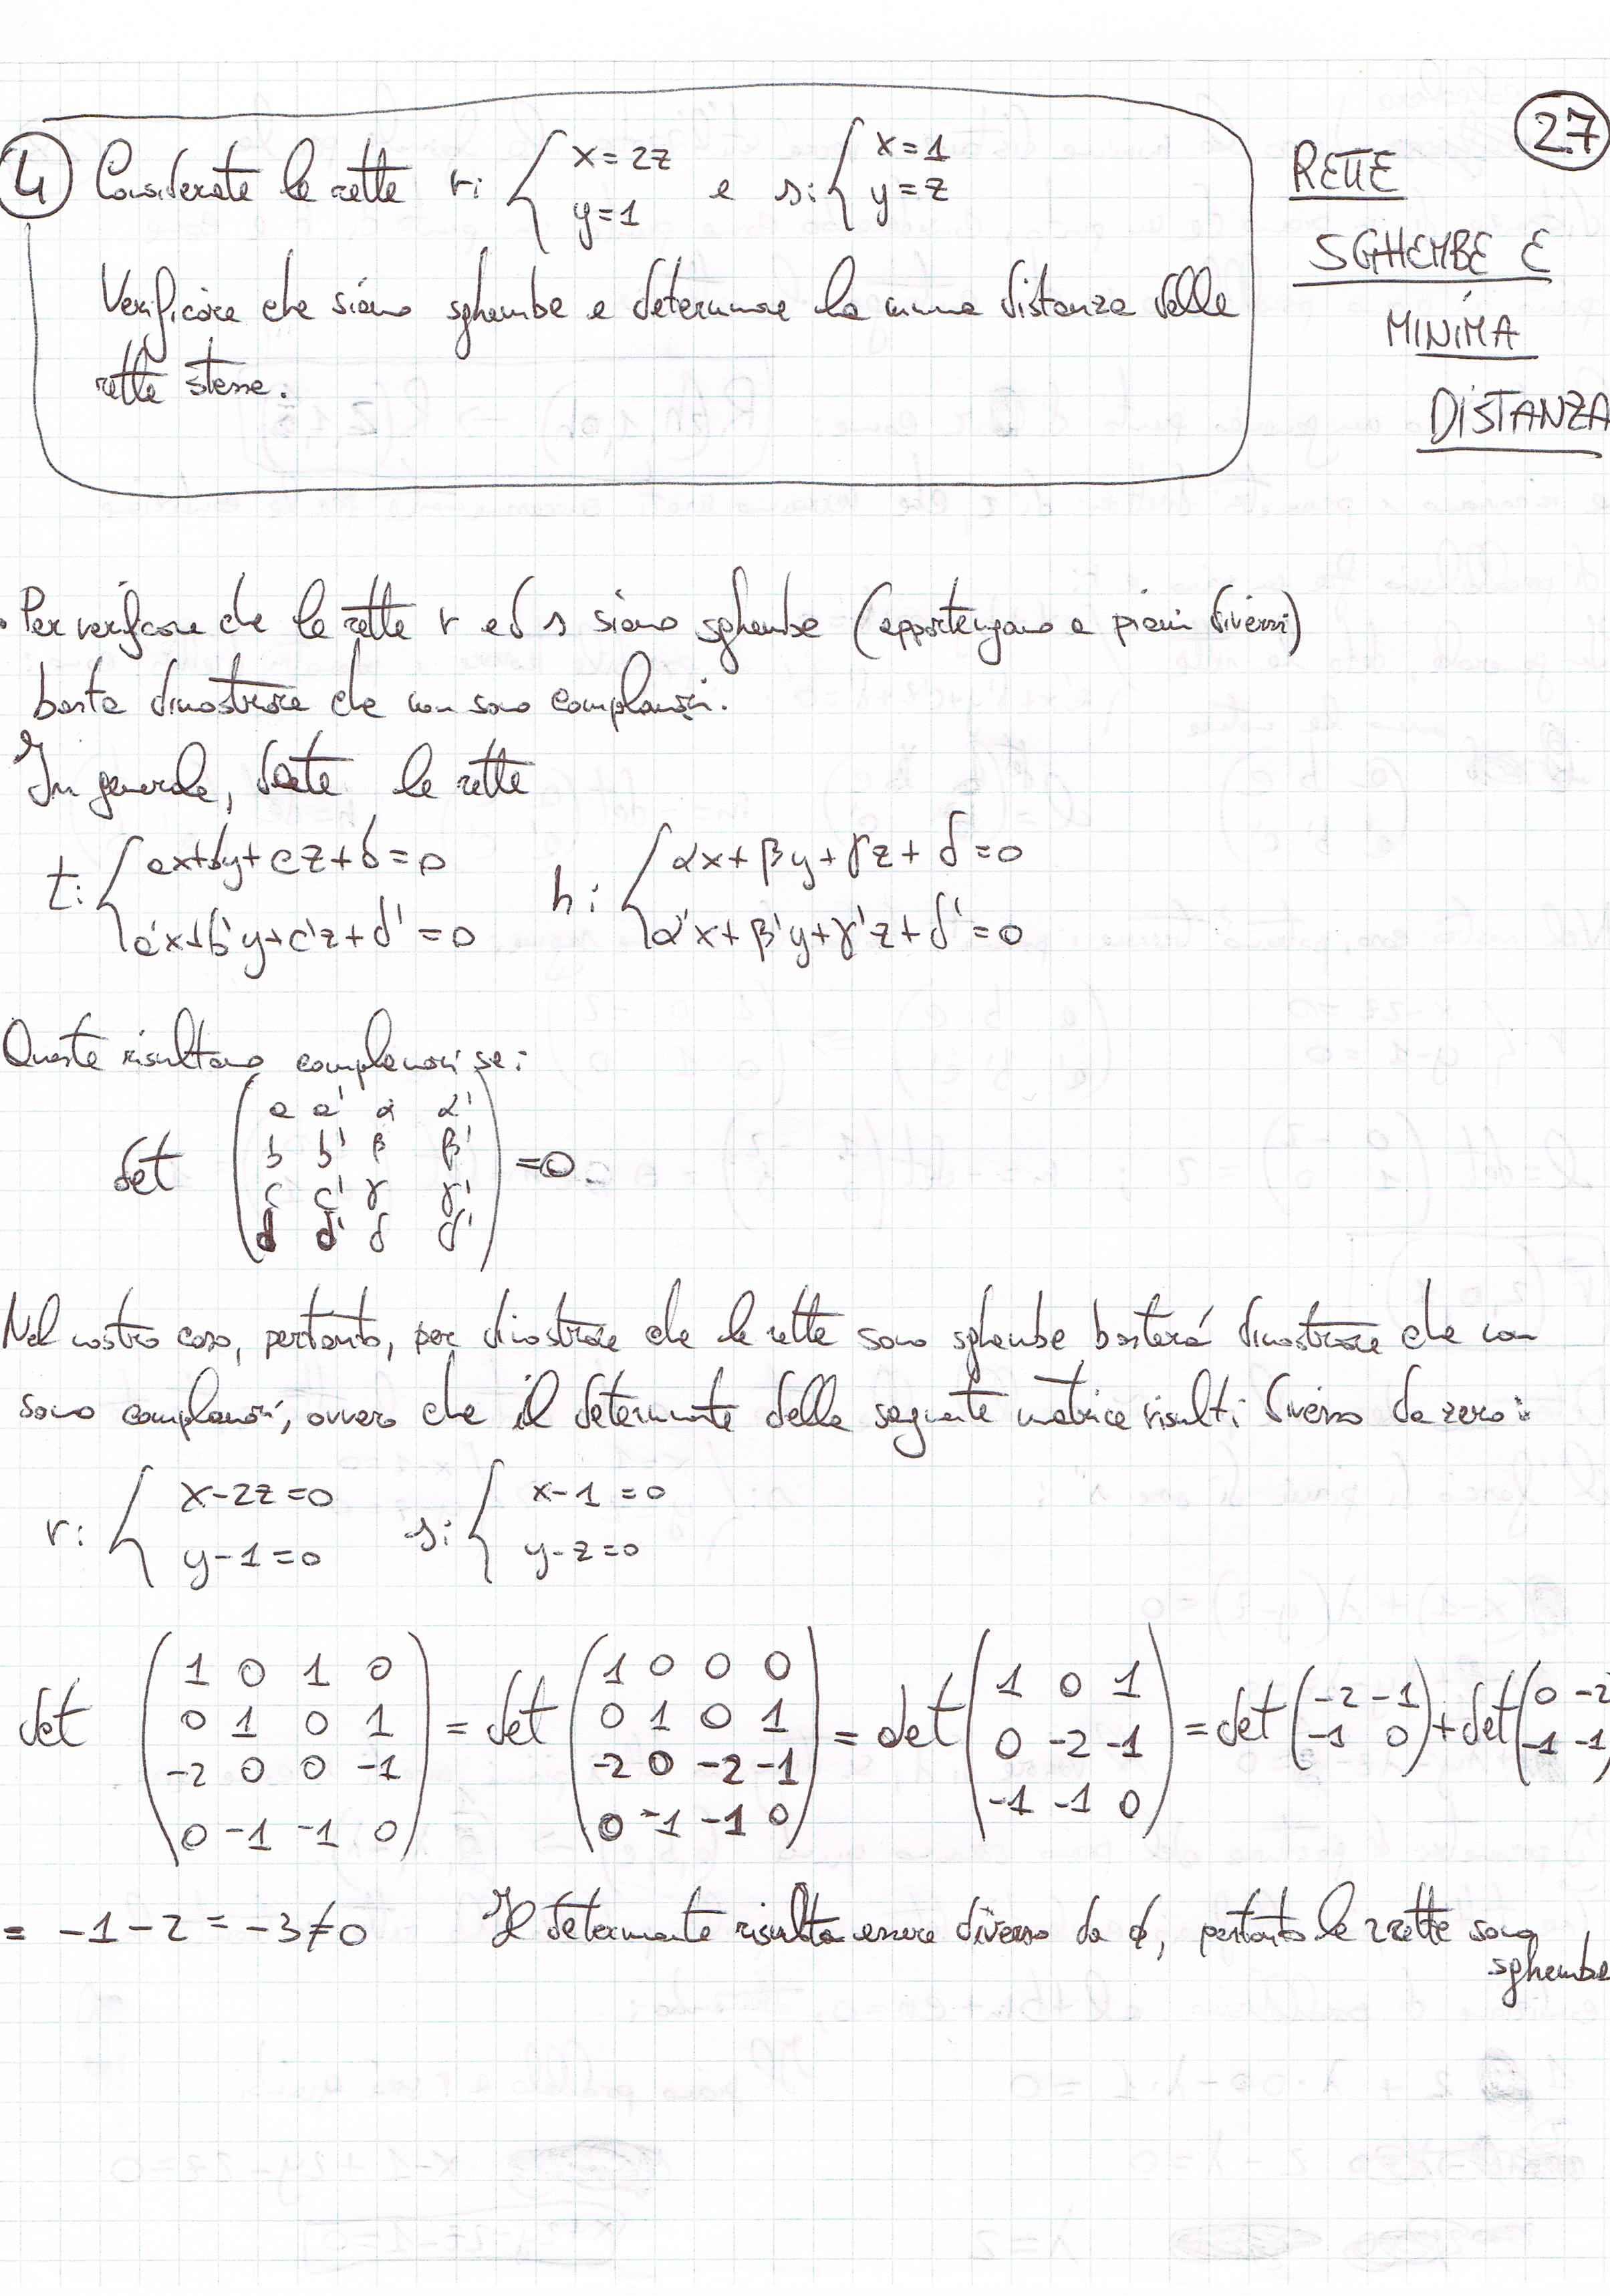 27
RETTE
SGHEMBE E
MINIMA
DISTANZA
4 Considerate le rette r: { x=2z e s: { x=1
y=1 y=z
Verificare che siano sghembe e determinare la minima distanza delle
rette stesse.
• Per verificare che le rette r ed s siano sghembe (appartengano a piani diversi)
basta dimostrare che non sono complanari.
In generale, date le rette
t: { ax+by+cz+d=0 h: { αx+βy+γz+δ=0
a'x+b'y+c'z+d'=0 α'x+β'y+γ'z+δ'=0
Queste risultano complanari se:
det ( a a' α α'
b b' β β'
c c' γ γ'
d d' δ δ' ) =0.
Nel nostro caso, pertanto, per dimostrare che le rette sono sghembe basterà dimostrare che non
sono complanari, ovvero che il determinante della seguente matrice risulti diverso da zero:
r: { x-2z=0 s: { x-1=0
y-1=0 y-z=0
det ( 1 0 1 0 = det ( 1 0 0 0 = det ( 1 0 1 = det ( -2 -1 + det ( 0 -2
0 1 0 1 0 1 0 1 0 -2 -1 -1 0 ) -1 -1 )
-2 0 0 -1 -2 0 -2 -1 -1 -1 0 )
0 -1 -1 0 ) 0 -1 -1 0 )
= -1-2 = -3≠0 Il determinante risulta essere diverso da ϕ, pertanto le 2 rette sono
sghembe